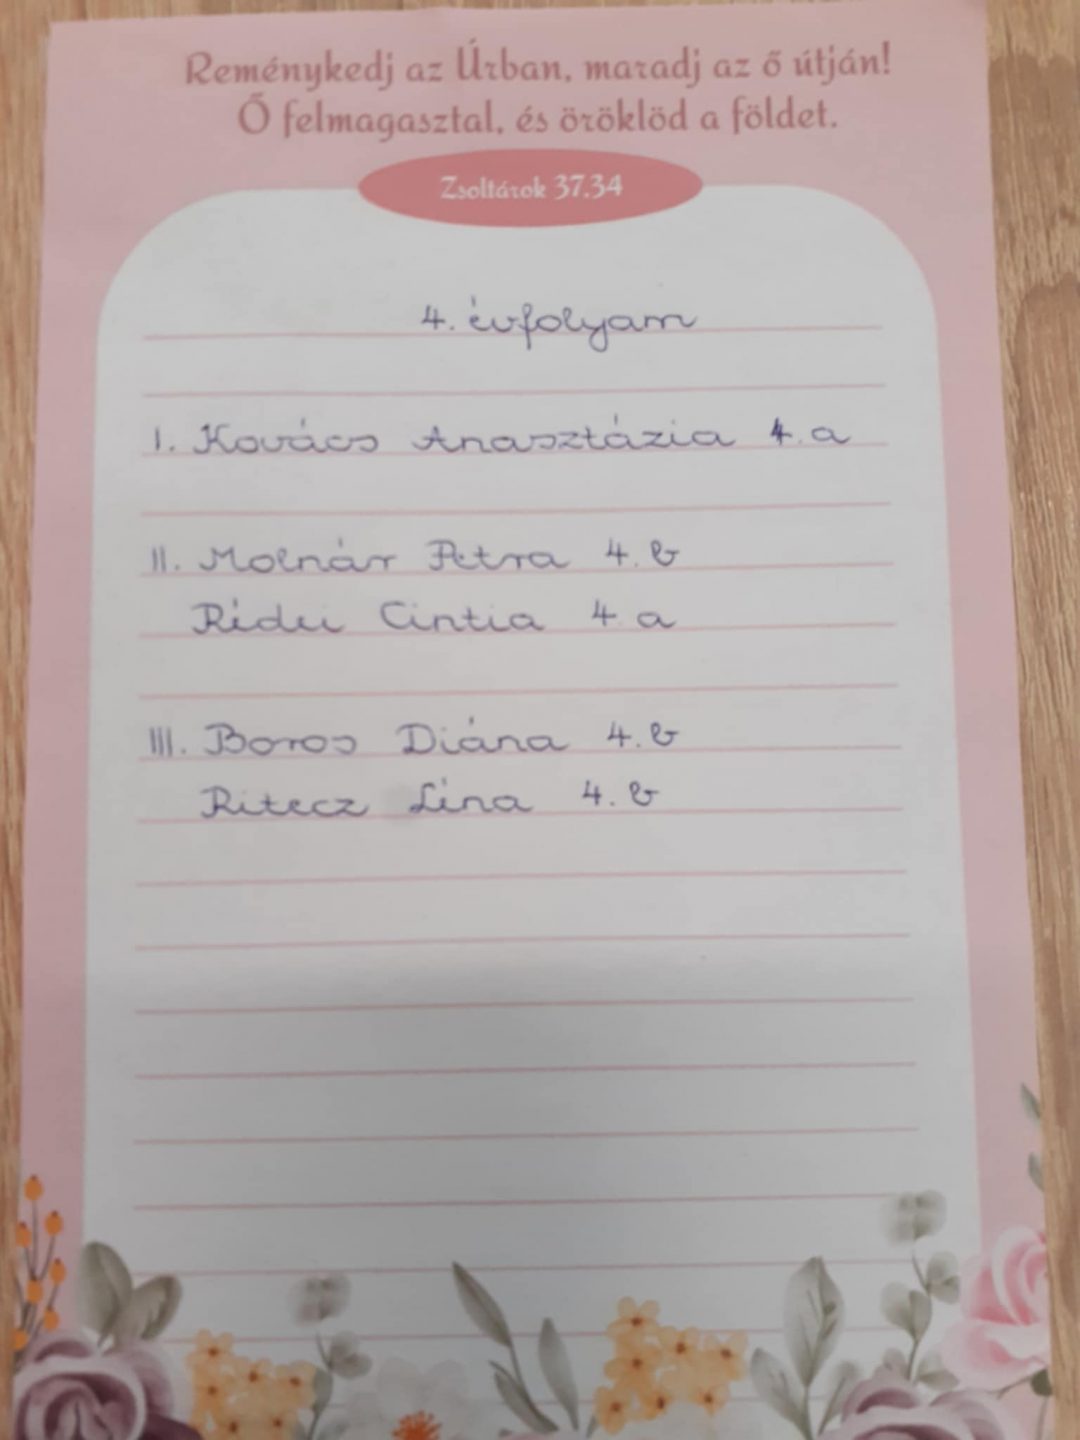 Reménykedj az Úrban, maradj az ő útján!
Ő felmagasztal, és öröklöd a földet.
Zsoltárok 37.34
4. évfolyam
I. Kovács Anasztázia 4. a
II. Molnár Petra 4. b
Rédei Cintia 4. a
III. Boros Diána 4. b
Ritecz Léna 4. b